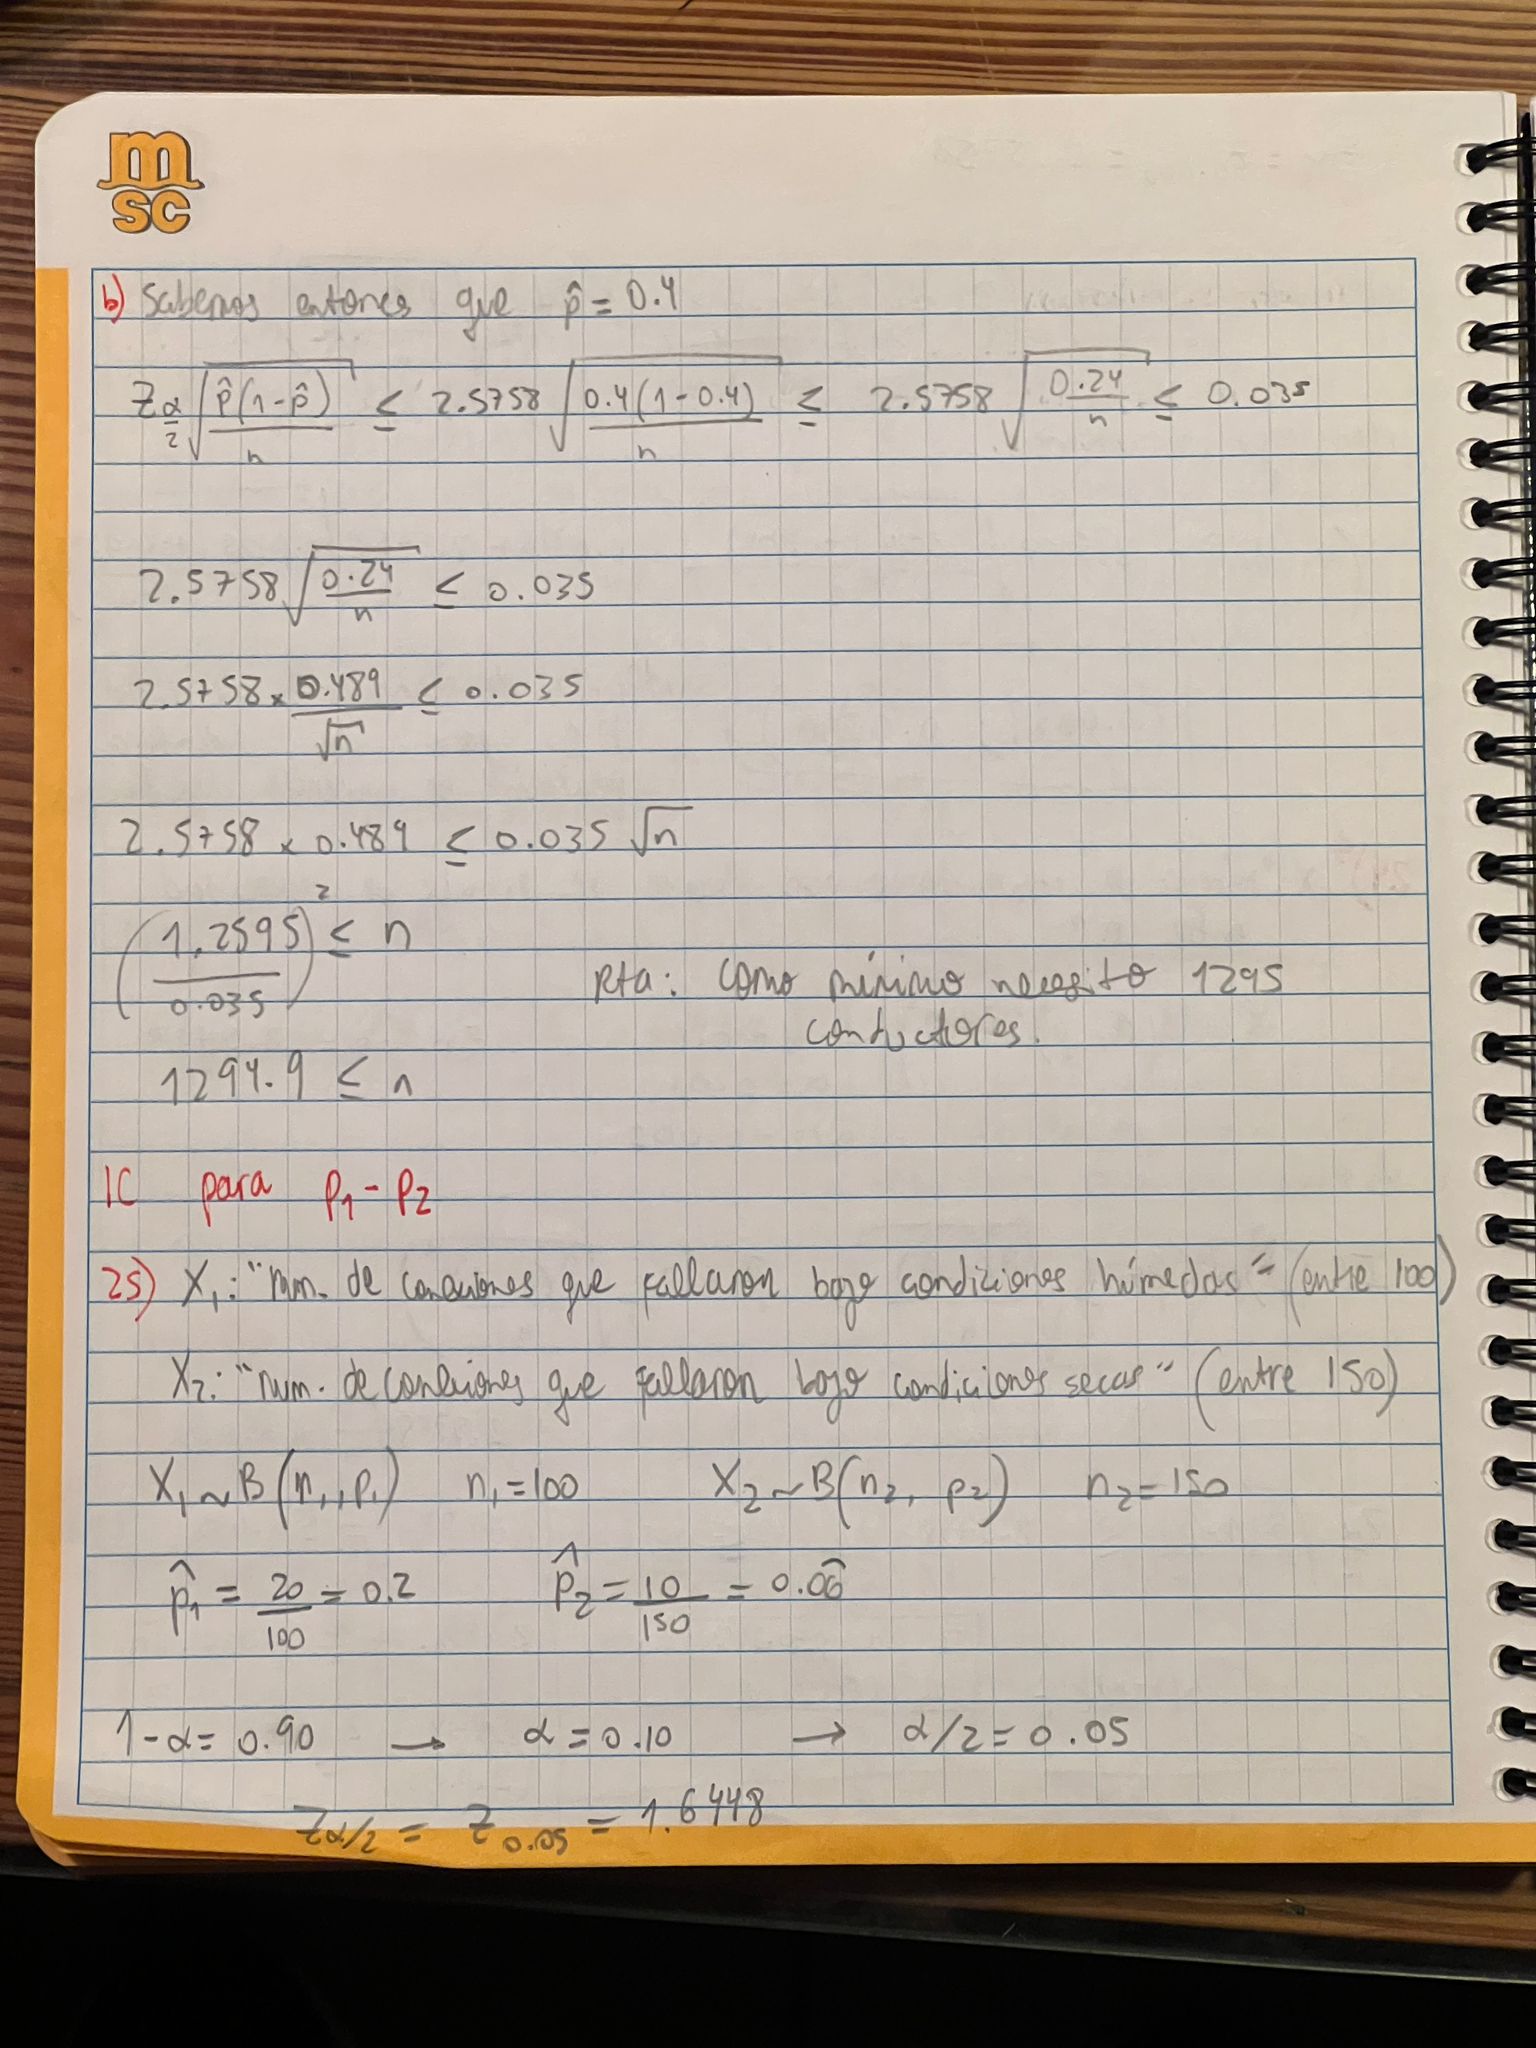 m
sc
b) Sabemos entonces que p̂ = 0.4
Z α/2 √(p̂(1-p̂)/n) ≤ 2.5758 √(0.4(1-0.4)/n) ≤ 2.5758 √(0.24/n) ≤ 0.035
2.5758 √(0.24/n) ≤ 0.035
2.5758 × 0.489/√n ≤ 0.035
2.5758 × 0.489 ≤ 0.035 √n
(1.2595/0.035)² ≤ n
Rta: Como mínimo necesito 1295
conductores.
1294.9 ≤ n
IC para p₁ - p₂
25) X₁: "num. de conexiones que fallaron bajo condiciones húmedas" (entre 100)
X₂: "num. de conexiones que fallaron bajo condiciones secas" (entre 150)
X₁ ~ B(n₁, p₁) n₁ = 100 X₂ ~ B(n₂, p₂) n₂ = 150
p̂₁ = 20/100 = 0.2 p̂₂ = 10/150 = 0.06̂
1-α = 0.90 → α = 0.10 → α/2 = 0.05
Zα/2 = Z0.05 = 1.6448